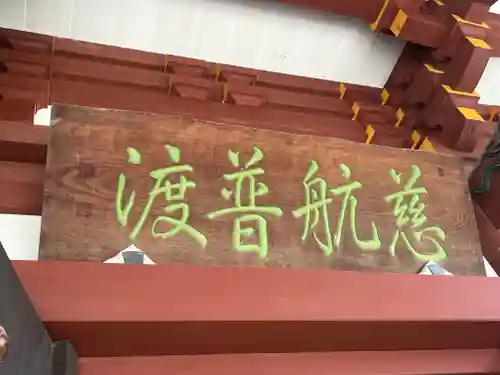 慈航普渡